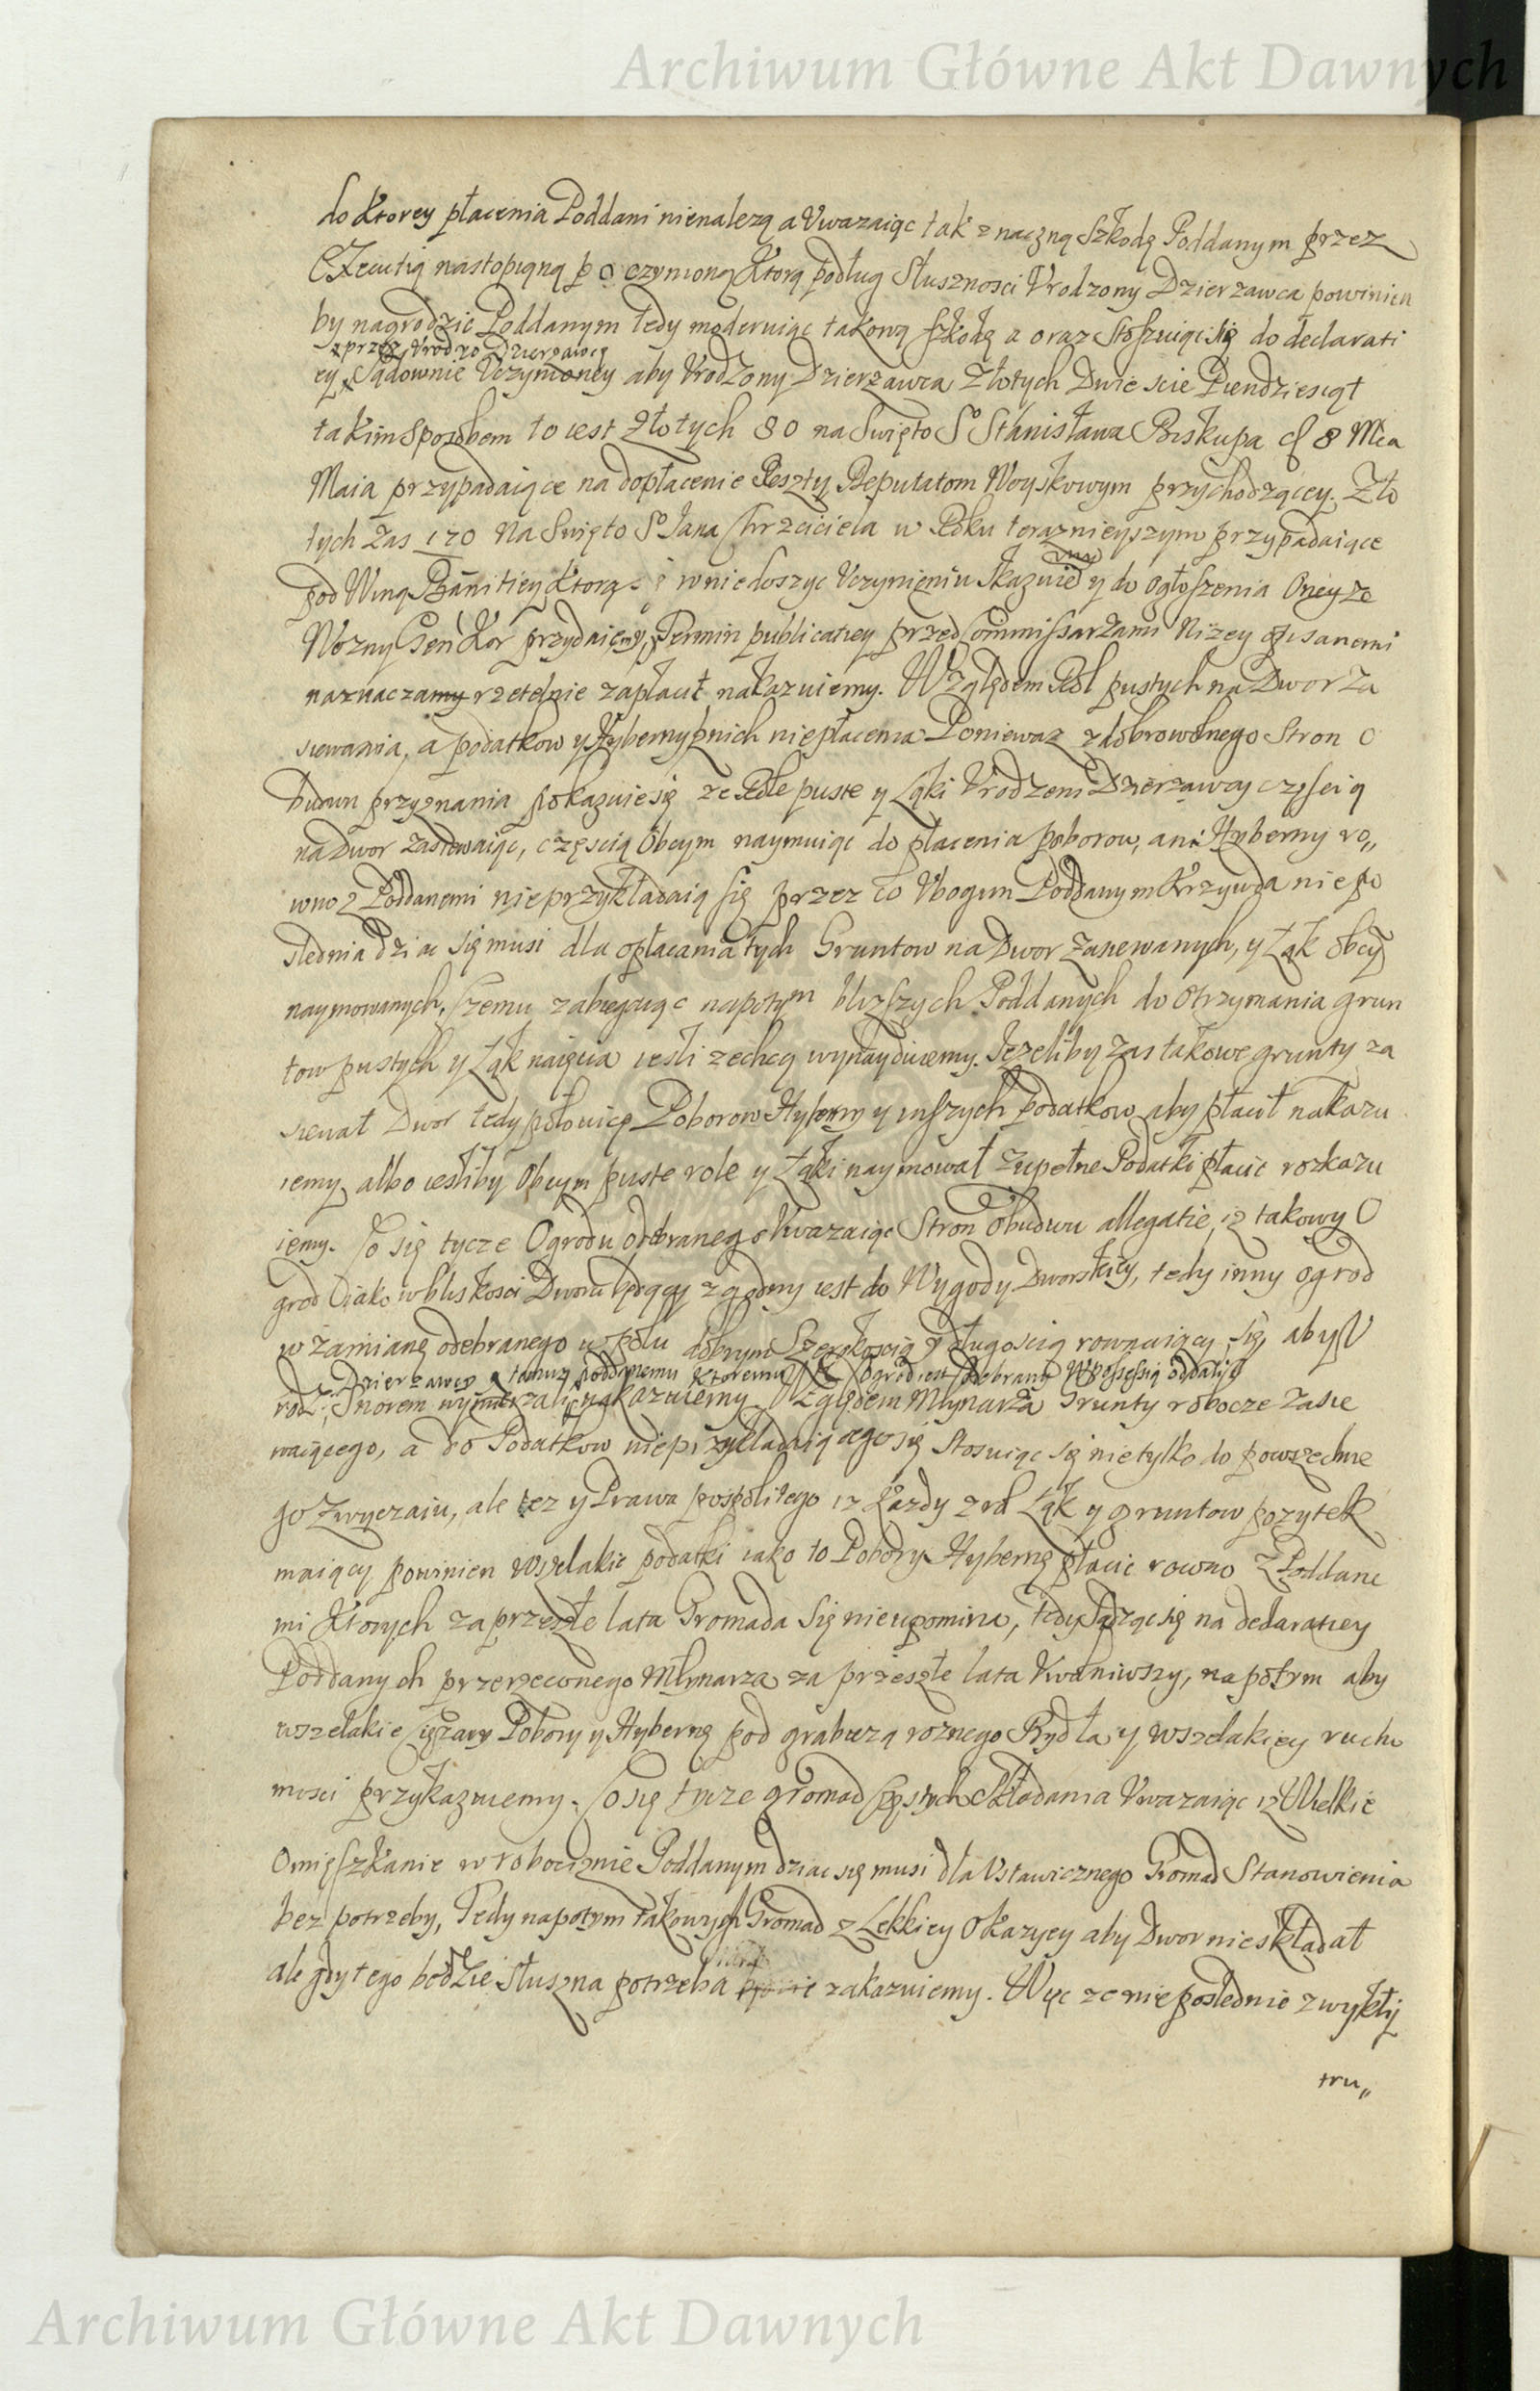 Archiwum Główne Akt Dawnych
do Ktorey płacenia Poddani nienalezą a Uwazaiąc tak znaczną Szkodę Poddanym przez
Executią nastąpioną poczynioną Ktorą podług Słusznosci Urodzony Dzierzawca powinien
by nagrodzic Poddanym tedy moderuiąc takową szkodę a oraz Stosuiąc się do declarati
przez Urodzo Dzierzawcę
ey Sądownie Uczynioney aby Urodzony Dzierzawca Złotych Dwiescie Piendziesiąt
takim Sposobem to iest Złotych 80 na Swięto So Stanisława Biskupa d 8 Mca
Maia przypadaiące na dopłacenie Reszty Deputatom Woyskowym przychodzącey. Zło
tych Zas 170 Na Swięto So Jana Chrzciciela w Roku teraznieyszym przypadaiące
pod Winą Banitiey Ktorą w niedosyc Uczynieniu Skazuie y do ogłoszenia Oney ze
Wozny Gen Kor przydaiemy, Termin publicatiey przed Commissarzami Nizey opisanemi
naznaczamy rzetelnie zapłacił nakazuiemy. Względem Rol pustych na Dwor Za
siewania, a podatkow y Hyberny z nich niepłacenia Poniewaz z dobrowolnego Stron O
budwu przyznania pokazuie się ze Role puste y Łąki Urodzeni Dzierzawcy częscią
na Dwor zasiewaiąc, częscią Obcym naymuiąc do płacenia poborow, ani Hyberny ro„
wno z Poddanemi nieprzykładaią się przez co Ubogim Poddanym Krzywda niepo
slednia dziac się musi dla opłacania tych Gruntow na Dwor zasiewanych, y Łąk obcy
naymowanych, Czemu zabiegaiąc napotym blizszych Poddanych do Otrzymania grun
tow pustych y Łąk naięcia iesli zechcą wynayduiemy. Jezeliby zas takowe grunty za
siewał Dwor tedy połowicę Poborow Hyberny y inszych podatkow aby płacił nakazu
iemy, albo iesliby Obcym puste role y Łąki naymował zupełne Podatki płacic rozkazu
iemy. Co się tycze Ogrodu odebranego Uwazaiąc Stron obudwu allegatie, iz takowy O
grod iako w bliskosci Dworu będący zgodny iest do Wygody Dworskiey, tedy inny ogrod
w zamianę odebranego w polu dobrym Szerokoscią y długoscią rownaiący się, aby U
Dzierzawcy tamuz poddanemu Ktoremu Ogrod iest Odebrany w possessią oddali
rodz: Snorem wymierzali nakazuiemy. Względem Młynarza Grunty robocze Zasie
waiącego, a do Podatkow nieprzykładaiącego się Stosuiąc się nietylko do powszechne
go Zwyczaiu, ale tez y Prawa pospolitego iz kazdy z rol Łąk y gruntow pozytek
maiący powinien wszelakie podatki iako to Pobory Hybernę płacic rowno z Poddane
mi Ktorych za przeszłe lata Gromada Się nieupomina, tedy Sądząc się na declaratiey
Poddanych przerzeczonego Młynarza za przeszłe lata Uwolniwszy, napotym aby
wszelakie Ciązary Pobory y Hybernę pod grabiezą roznego Bydła y wszelakiey rucho
mosci przykazuiemy. Co się tycze gromad Częstych Składania Uwazaiąc iz Wielkie
Omięszkanie w robociznie Poddanym dziac się musi dla Ustawicznego Gromad Stanowienia
bez potrzeby, Tedy napotym takowych Gromad z Lekkiey Okazyey aby Dwor nieskładał
ale gdy tego będzie Słuszna potrzeba zakazuiemy. Więc ze nieposlednie zwykły
tru„
Archiwum Główne Akt Dawnych